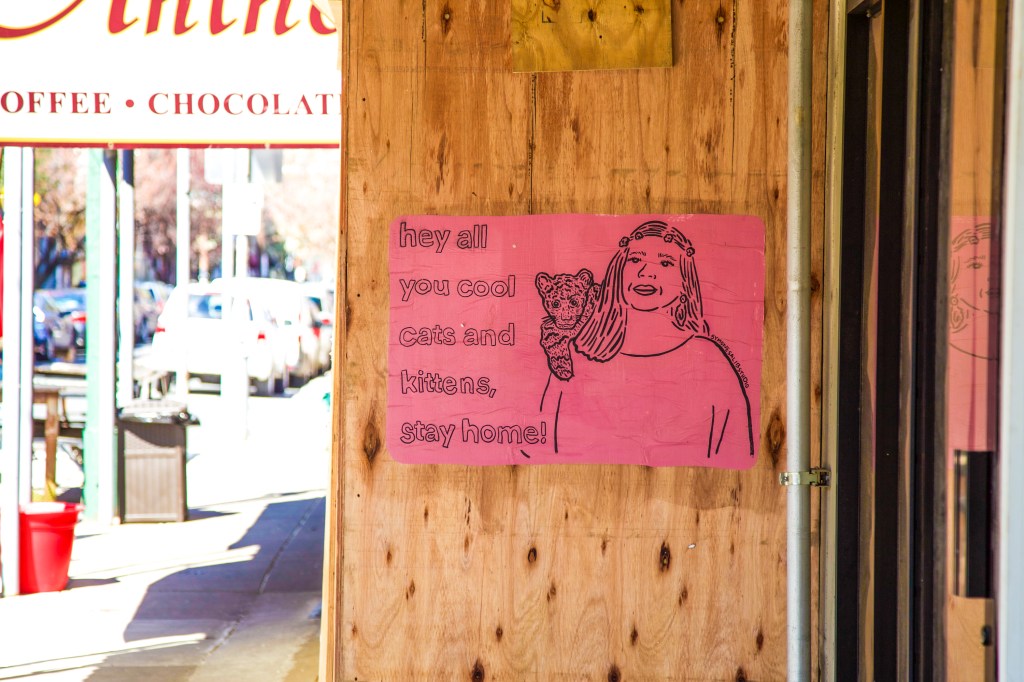 OFFEE • CHOCOLAT
hey all
you cool
cats and
kittens,
stay home!